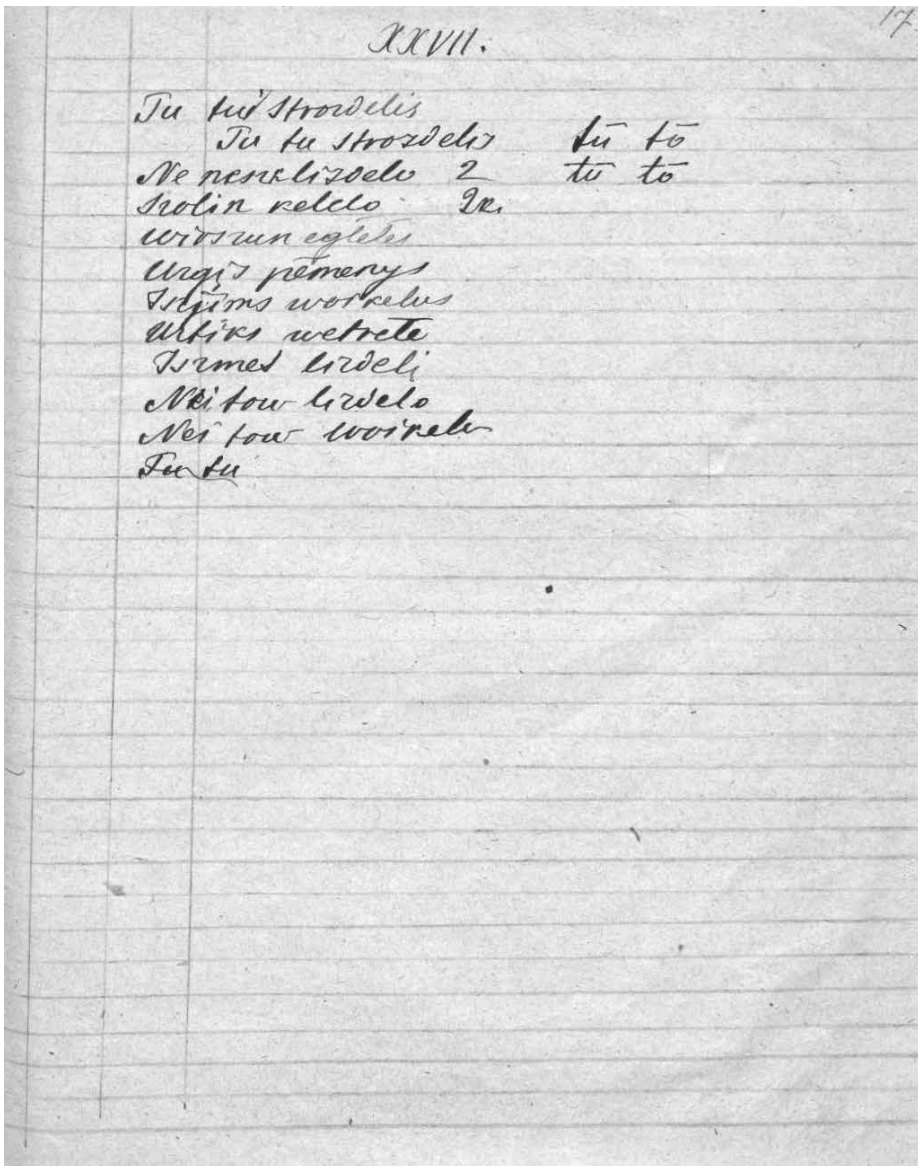 17
XXVII.
Tu tui Strozdelis
Tu tu strozdelis tū tō
Ne nesuk lizdelo 2 tū tō
Szolin kelelo 2k.
wirszun egleles
Urgis pēmenys
Iszjims woikelus
Urtiks wetrele
Iszmes lizdeli
Nei tow lizdelo
Nei tow woikelu
Tu tu